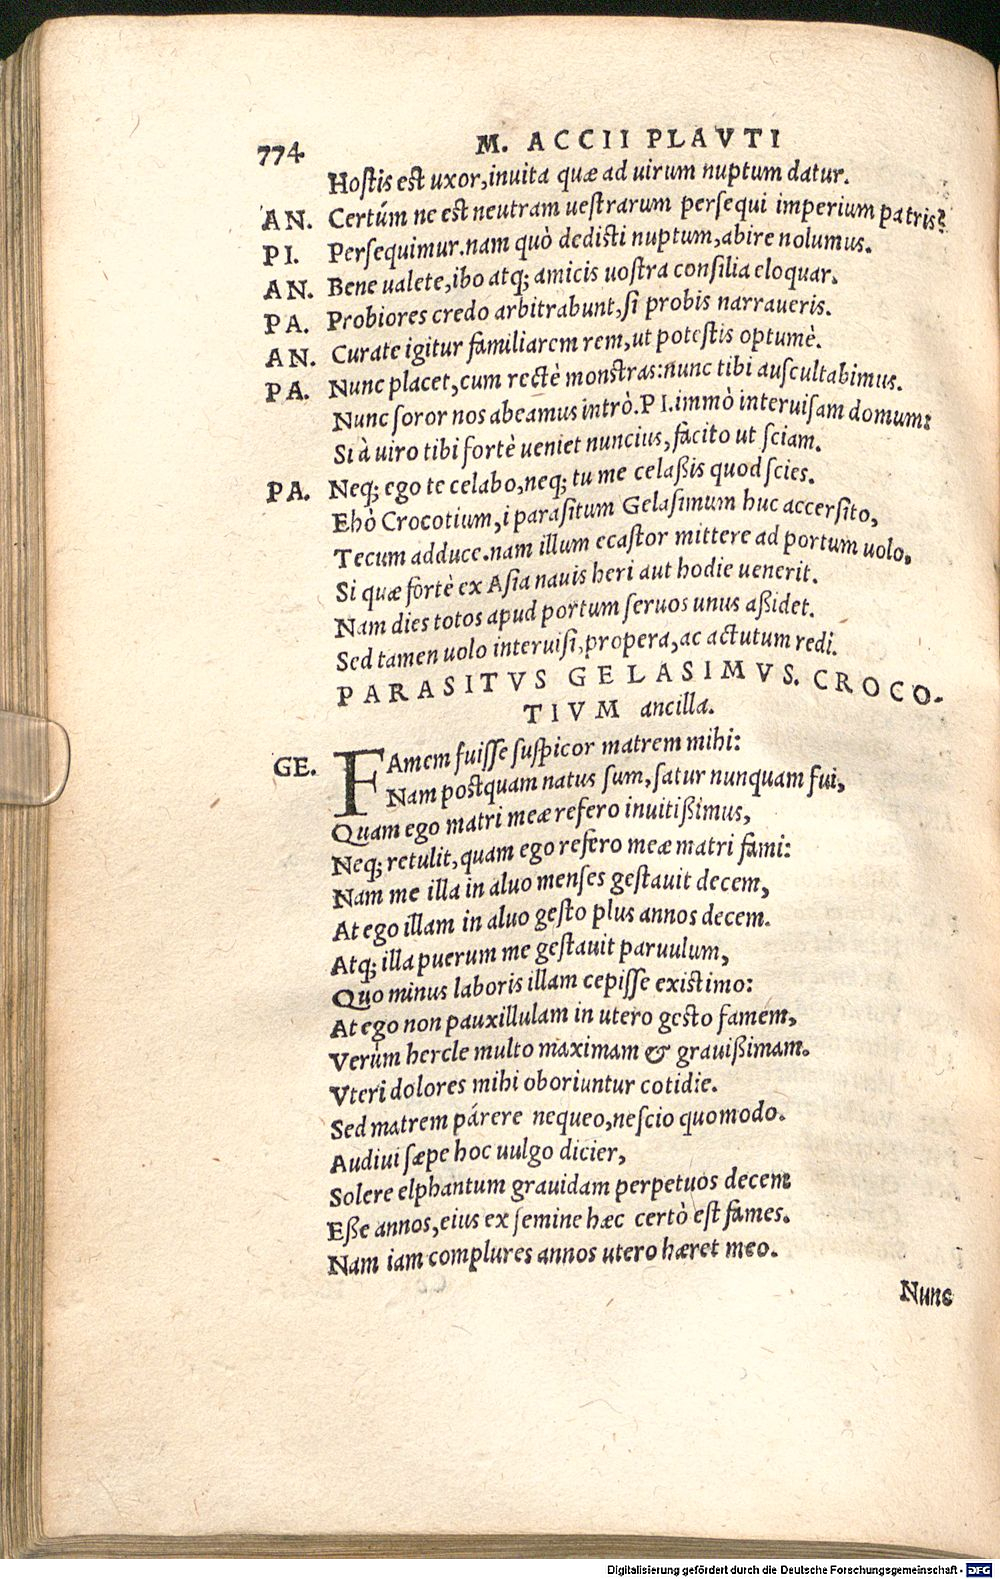 774. M. ACCII PLAVTI
Hostis est uxor, inuita quæ ad uirum nuptum datur.
AN. Certúm ne est neutram uestrarum persequi imperium patris?
PI. Persequimur. nam quò dedisti nuptum, abire nolumus.
AN. Bene ualete, ibo atq; amicis uostra consilia eloquar.
PA. Probiores credo arbitrabunt, si probis narraueris.
AN. Curate igitur familiarem rem, ut potestis optumè.
PA. Nunc placet, cum rectè monstras: nunc tibi auscultabimus.
Nunc soror nos abeamus intrò. PI. immò interuisam domum:
Si à uiro tibi fortè ueniet nuncius, facito ut sciam.
PA. Neq; ego te celabo, neq; tu me celaßis quod scies.
Ehò Crocotium, i parasitum Gelasimum huc accersito,
Tecum adduce. nam illum ecastor mittere ad portum uolo,
Si quæ fortè ex Asia nauis heri aut hodie uenerit.
Nam dies totos apud portum seruos unus aßidet.
Sed tamen uolo interuisi, propera, ac actutum redi.
PARASITVS GELASIMVS. CROCO-
TIVM ancilla.
GE. FAmem fuisse suspicor matrem mihi:
Nam postquam natus sum, satur nunquam fui,
Quam ego matri meæ refero inuitißimus,
Neq; retulit, quam ego refero meæ matri fami:
Nam me illa in aluo menses gestauit decem,
At ego illam in aluo gesto plus annos decem.
Atq; illa puerum me gestauit paruulum,
Quo minus laboris illam cepisse existimo:
At ego non pauxillulam in utero gesto famem,
Verùm hercle multo maximam & grauißimam.
Vteri dolores mihi oboriuntur cotidie.
Sed matrem párere nequeo, nescio quomodo.
Audiui sæpe hoc uulgo dicier,
Solere elphantum grauidam perpetuos decem
Eße annos, eius ex semine hæc certò est fames.
Nam iam complures annos utero hæret meo.
Nunc
Digitalisierung gefördert durch die Deutsche Forschungsgemeinschaft - DFG